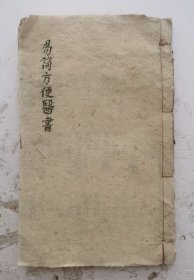 易简方便醫書